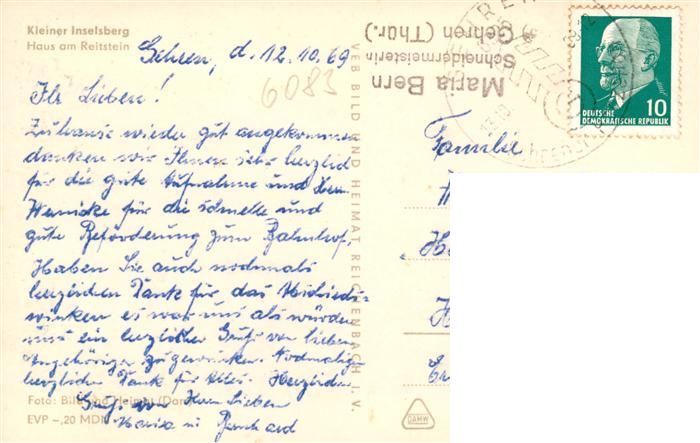 Kleiner Inselsberg
Haus am Reitstein
Gehren, d. 12.10.69
6083
Ihr Lieben!
Zuhause wieder gut angekommen
danken wir Ihnen sehr herzlich
für die gute Aufnahme und Herrn
Wernicke für die schnelle und
gute Beförderung zum Bahnhof.
Haben Sie auch nochmals
herzlichen Dank für das Abschieds-
winken es war uns als würden
uns ein herzlicher Gruß von lieben
Angehörigen zugewinken. Nochmaligen
herzlichen Dank für Alles. Herzlichen
Gruß von Ihren Lieben
Bernhard
Foto: Bild und Heimat
EVP -,20 MDN
VEB BILD UND HEIMAT REICHENBACH I. V.
Maria Bern
Schneidermeisterin
Gehren (Thür.)
DEUTSCHE
DEMOKRATISCHE REPUBLIK
10
Familie
DAMW